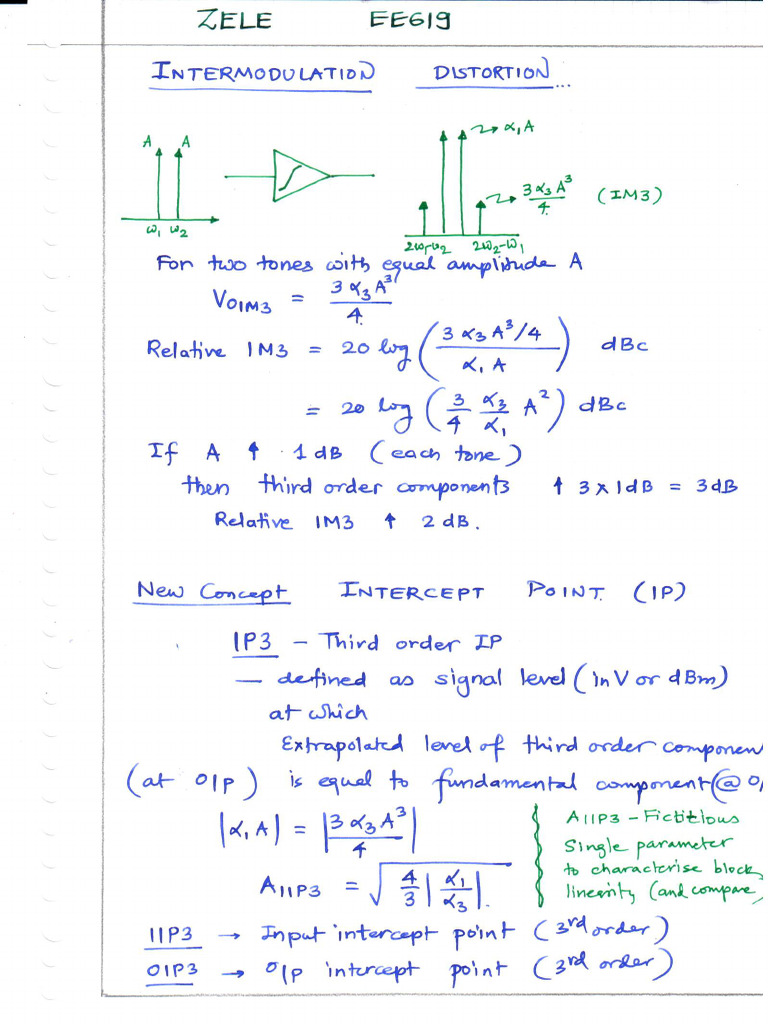 ZELE EE619
INTERMODULATION DISTORTION...
A A
α₁A
3α₃A³/4 (IM3)
ω₁ ω₂
2ω₁-ω₂ 2ω₂-ω₁
For two tones with equal amplitude A
V₀IM3 = 3α₃A³/4
Relative IM3 = 20 log (3α₃A³/4 / α₁A) dBc
= 20 log (3/4 α₃/α₁ A²) dBc
If A ↑ 1dB (each tone)
then third order components ↑ 3×1dB = 3dB
Relative IM3 ↑ 2 dB.
New Concept INTERCEPT POINT (IP)
IP3 – Third order IP
— defined as signal level (in V or dBm)
at which
Extrapolated level of third order componen
(at O/P) is equal to fundamental component (@ O/
|α₁A| = |3α₃A³/4|
AIIP3 = √(4/3 |α₁/α₃|).
AIIP3 – Fictitious
Single parameter
to characterise block
linearity (and compare)
IIP3 → Input intercept point (3rd order)
OIP3 → O/P intercept point (3rd order)